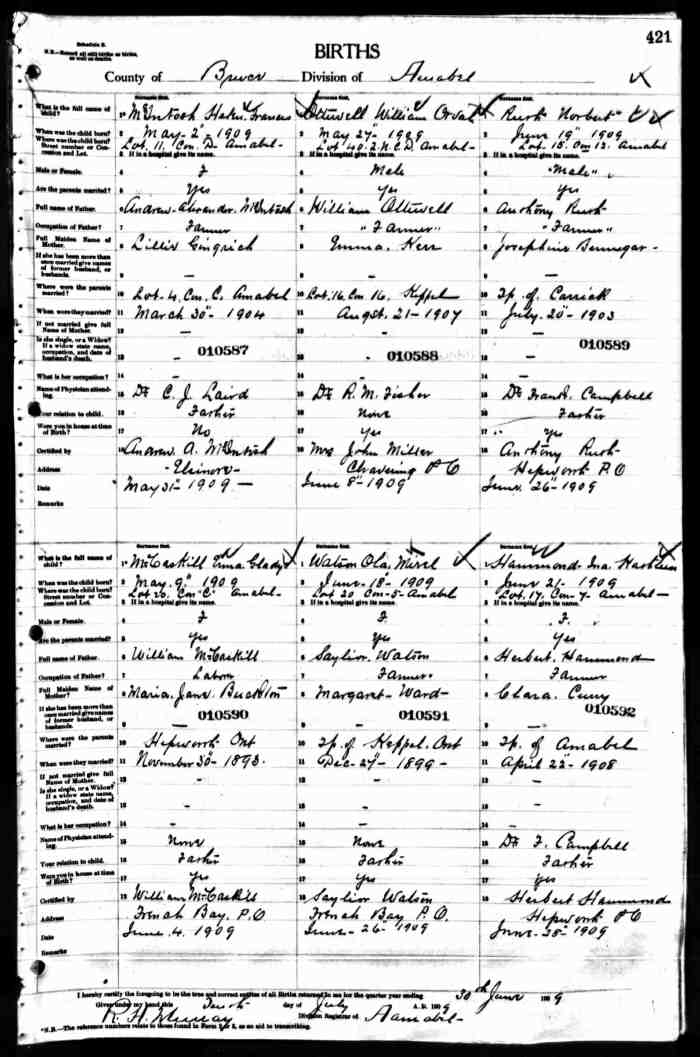 421
Schedule B.
N.B.—Record all still births as births, as well as deaths.
BIRTHS
County of Bruce Division of Amabel
What is the full name of child?
When was the child born?
Where was the child born? Street number or Concession and Lot.
Male or Female.
Are the parents married?
Full name of Father.
Occupation of Father?
Full Maiden Name of Mother.
If she has been more than once married give names of former husband, or husbands.
Where were the parents married?
When were they married?
If not married give full Name of Mother.
Is she single, or a Widow? If a widow state name, occupation, and date of husband's death.
What is her occupation?
Name of Physician attending.
Your relation to child.
Were you in house at time of Birth?
Certified by
Address
Date
Remarks
McIntosh Francis
May 2" 1909
Lot. 11. Con. D. Amabel
If in a hospital give its name.
F
Yes
Andrew Alexander McIntosh
Farmer
Lillie Gingrich
—
Lot. 4. Con. C. Amabel
March 30" 1904
—
010587
—
Dr C. J. Laird
Father
No
Andrew A. McIntosh
Elsinore
May 31" 1909
Ottewell William
May 27" 1909
Amabel
If in a hospital give its name.
Male
Yes
William Ottewell
"Farmer"
Emma Kerr
—
Lot. 16. Con 16. Keppel
Augst. 21 - 1907
—
010588
—
Dr R. M. Fisher
None
Yes
Mrs John Miller
Clavering P.O
June 8" 1909
Rush Norbert
June 19" 1909
Lot. 15. Con 12. Amabel
If in a hospital give its name.
"Male"
Yes
Anthony Rush
"Farmer"
Josephine
—
Tp. of Carrick
July. 20" 1903
—
010589
—
Dr Campbell
Father
Yes
Anthony Rush
Hepworth P.O
June 26" 1909
What is the full name of child?
When was the child born?
Where was the child born? Street number or Concession and Lot.
Male or Female.
Are the parents married?
Full name of Father.
Occupation of Father?
Full Maiden Name of Mother?
If she has been more than once married give names of former husband, or husbands.
Where were the parents married?
When were they married?
If not married give full Name of Mother.
Is she single, or a Widow? If a widow state name, occupation, and date of husband's death.
What is her occupation?
Name of Physician attending.
Your relation to child.
Were you in house at time of Birth?
Certified by
Address
Date
Remarks
McCaskill Gladys
May. 9" 1909
Lot 20. Con "C" Amabel
If in a hospital give its name.
F
Yes
William McCaskill
Labor
Maria Jane
010590
—
Hepworth Ont
November 30" 1893
—
None
Father
Yes
William McCaskill
French Bay. P.O
June. 4. 1909
Watson Ola
June 18 - 1909
Lot 20 Con 5 Amabel
If in a hospital give its name.
F.
Yes
Watson
Farmer
Margaret Ward
010591
—
Tp. of Keppel. Ont
Dec 27" 1899
—
None
Father
Yes
Watson
French Bay P.O.
June 26" 1909
Hammond Ina
June 21 - 1909
Lot. 17. Con 7 Amabel
If in a hospital give its name.
F.
Yes
Herbert. Hammond
Farmer
Clara
010592
Tp. of Amabel
April 22" 1908
—
Dr F. Campbell
Father
Yes
Herbert Hammond
Hepworth P.O
June 28" 1909
I hereby certify the foregoing to be the true and correct entries of all Births returned to me for the quarter year ending 30th June 1909
Given under my hand this day of July A.D. 1909
R. H. Murray Division Registrar of Amabel
*N.B.—The reference numbers relate to those found in Form 2 or 3, as an aid to transcribing.